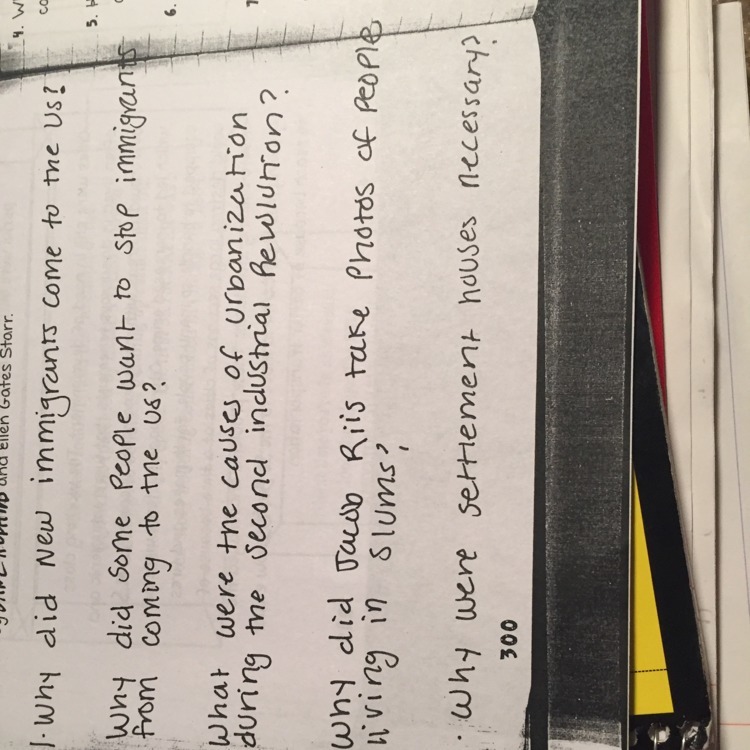 and Ellen Gates Starr.
1. Why did New immigrants come to the US?
Why did some people want to stop immigrants
from coming to the US?
What were the causes of urbanization
during the second industrial Revolution?
Why did Jacob Riis take photos of people
living in slums?
. Why were settlement houses necessary?
300
4. W
co
5. H
6.
7